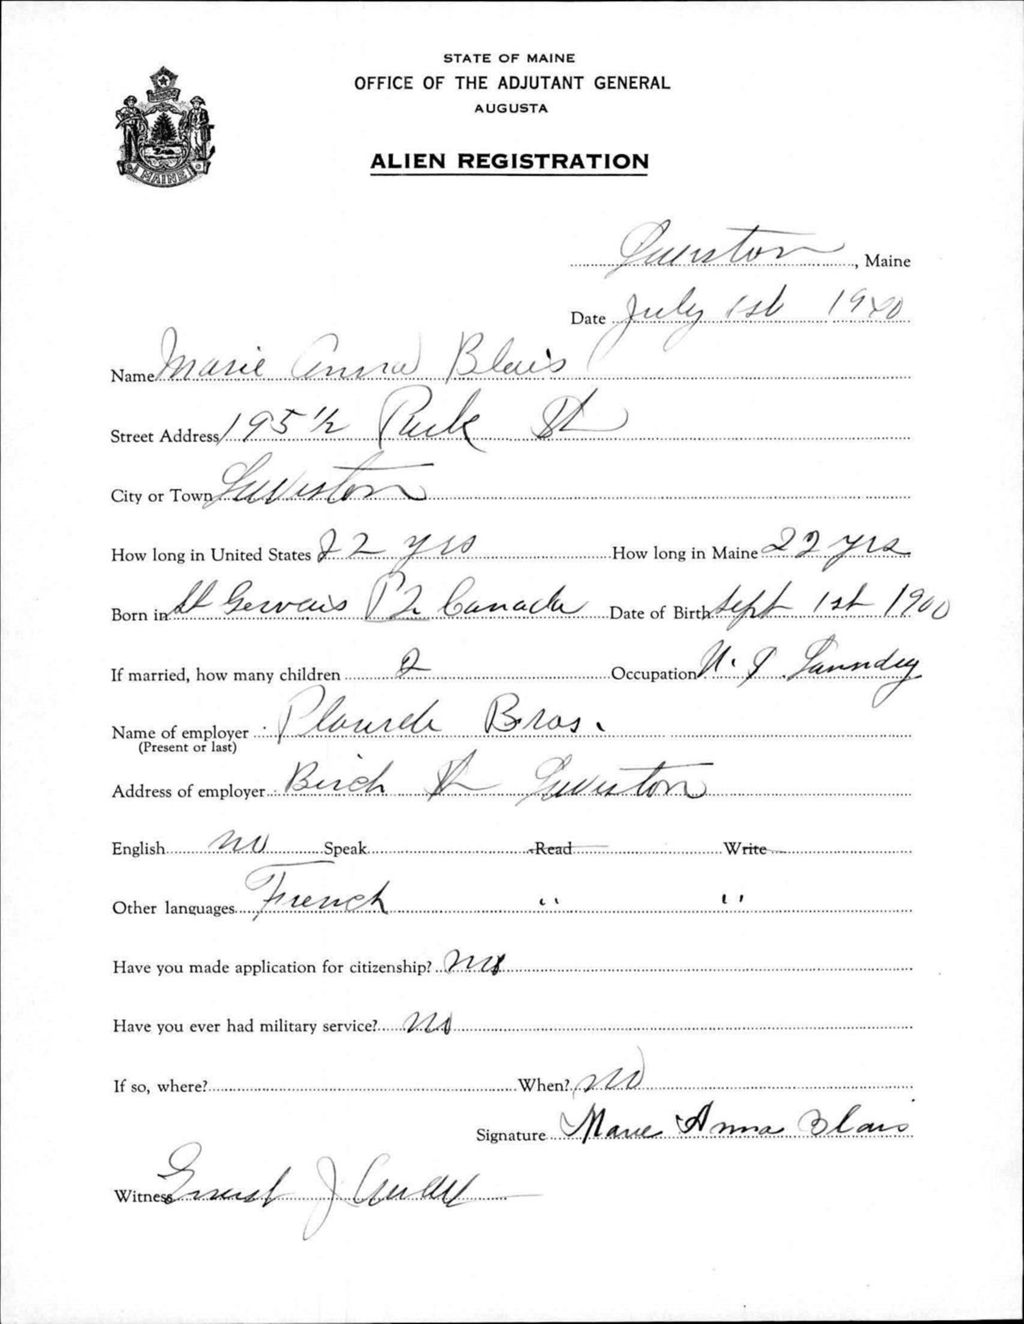 STATE OF MAINE
OFFICE OF THE ADJUTANT GENERAL
AUGUSTA
ALIEN REGISTRATION
MAINE
Lewiston, Maine
Date July 1st 1940
Name Marie Anna Blais
Street Address 195 1/2 Park St
City or Town Lewiston
How long in United States 22 yrs How long in Maine 22 yrs
Born in St Gervais P2 Canada Date of Birth Sept 1st 1900
If married, how many children 2 Occupation Laundry
Name of employer Plourde Bros.
(Present or last)
Address of employer Birch St Lewiston
English no Speak Read Write
Other languages French " "
Have you made application for citizenship? no
Have you ever had military service? no
If so, where? When? no
Signature Marie Anna Blais
Witness Ernest J